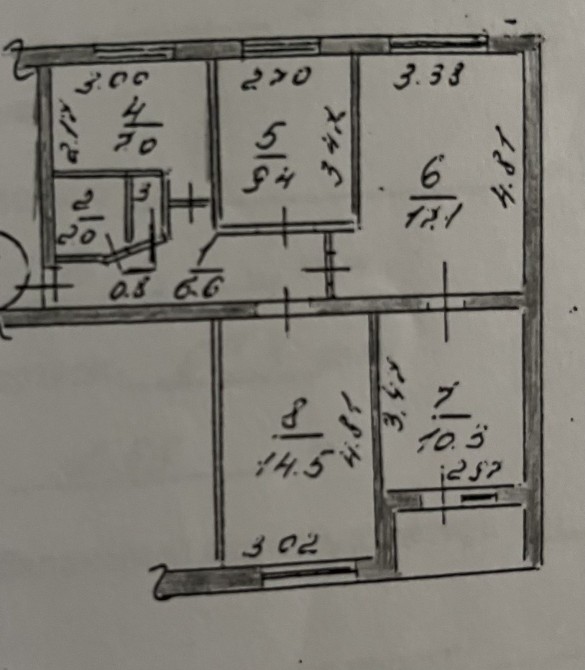 3.00
2.17
4
7.0
2
2.0
3
0.8
6.6
2.70
5
9.4
3.47
3.38
6
17.1
4.81
8
14.5
4.81
3.02
7
10.3
3.47
2.97